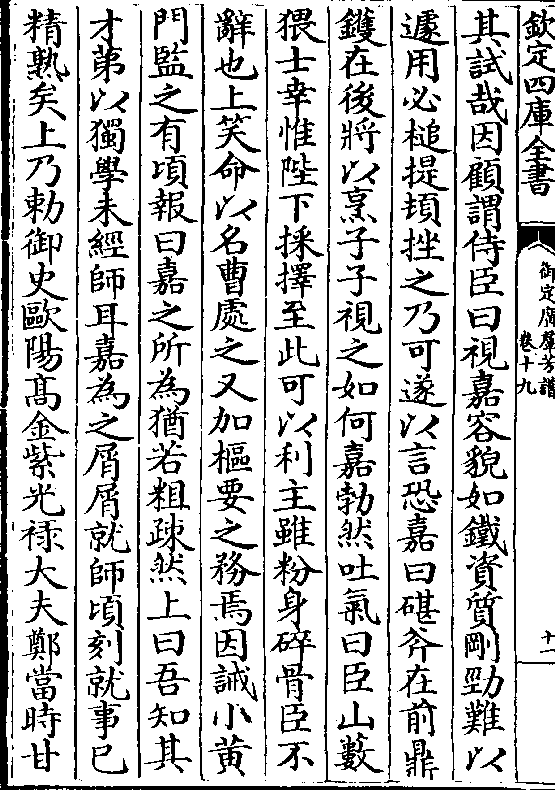 欽定四庫全書
御定廣羣芳譜
卷十九
十一
其試哉因顧謂侍臣曰視嘉容貌如鐵資質剛勁難以
遽用必槌提頓挫之乃可遂以言恐嘉曰碪斧在前鼎
鑊在後將以烹子子視之如何嘉勃然吐氣曰臣山藪
猥士幸惟陛下採擇至此可以利主雖粉身碎骨臣不
辭也上笑命以名曹處之又加樞要之務焉因誡小黄
門監之有頃報曰嘉之所為猶若粗疎然上曰吾知其
才苐以獨學未經師耳嘉為之屑屑就師頃刻就事已
精熟矣上乃勅御史歐陽髙金紫光禄大夫鄭當時甘